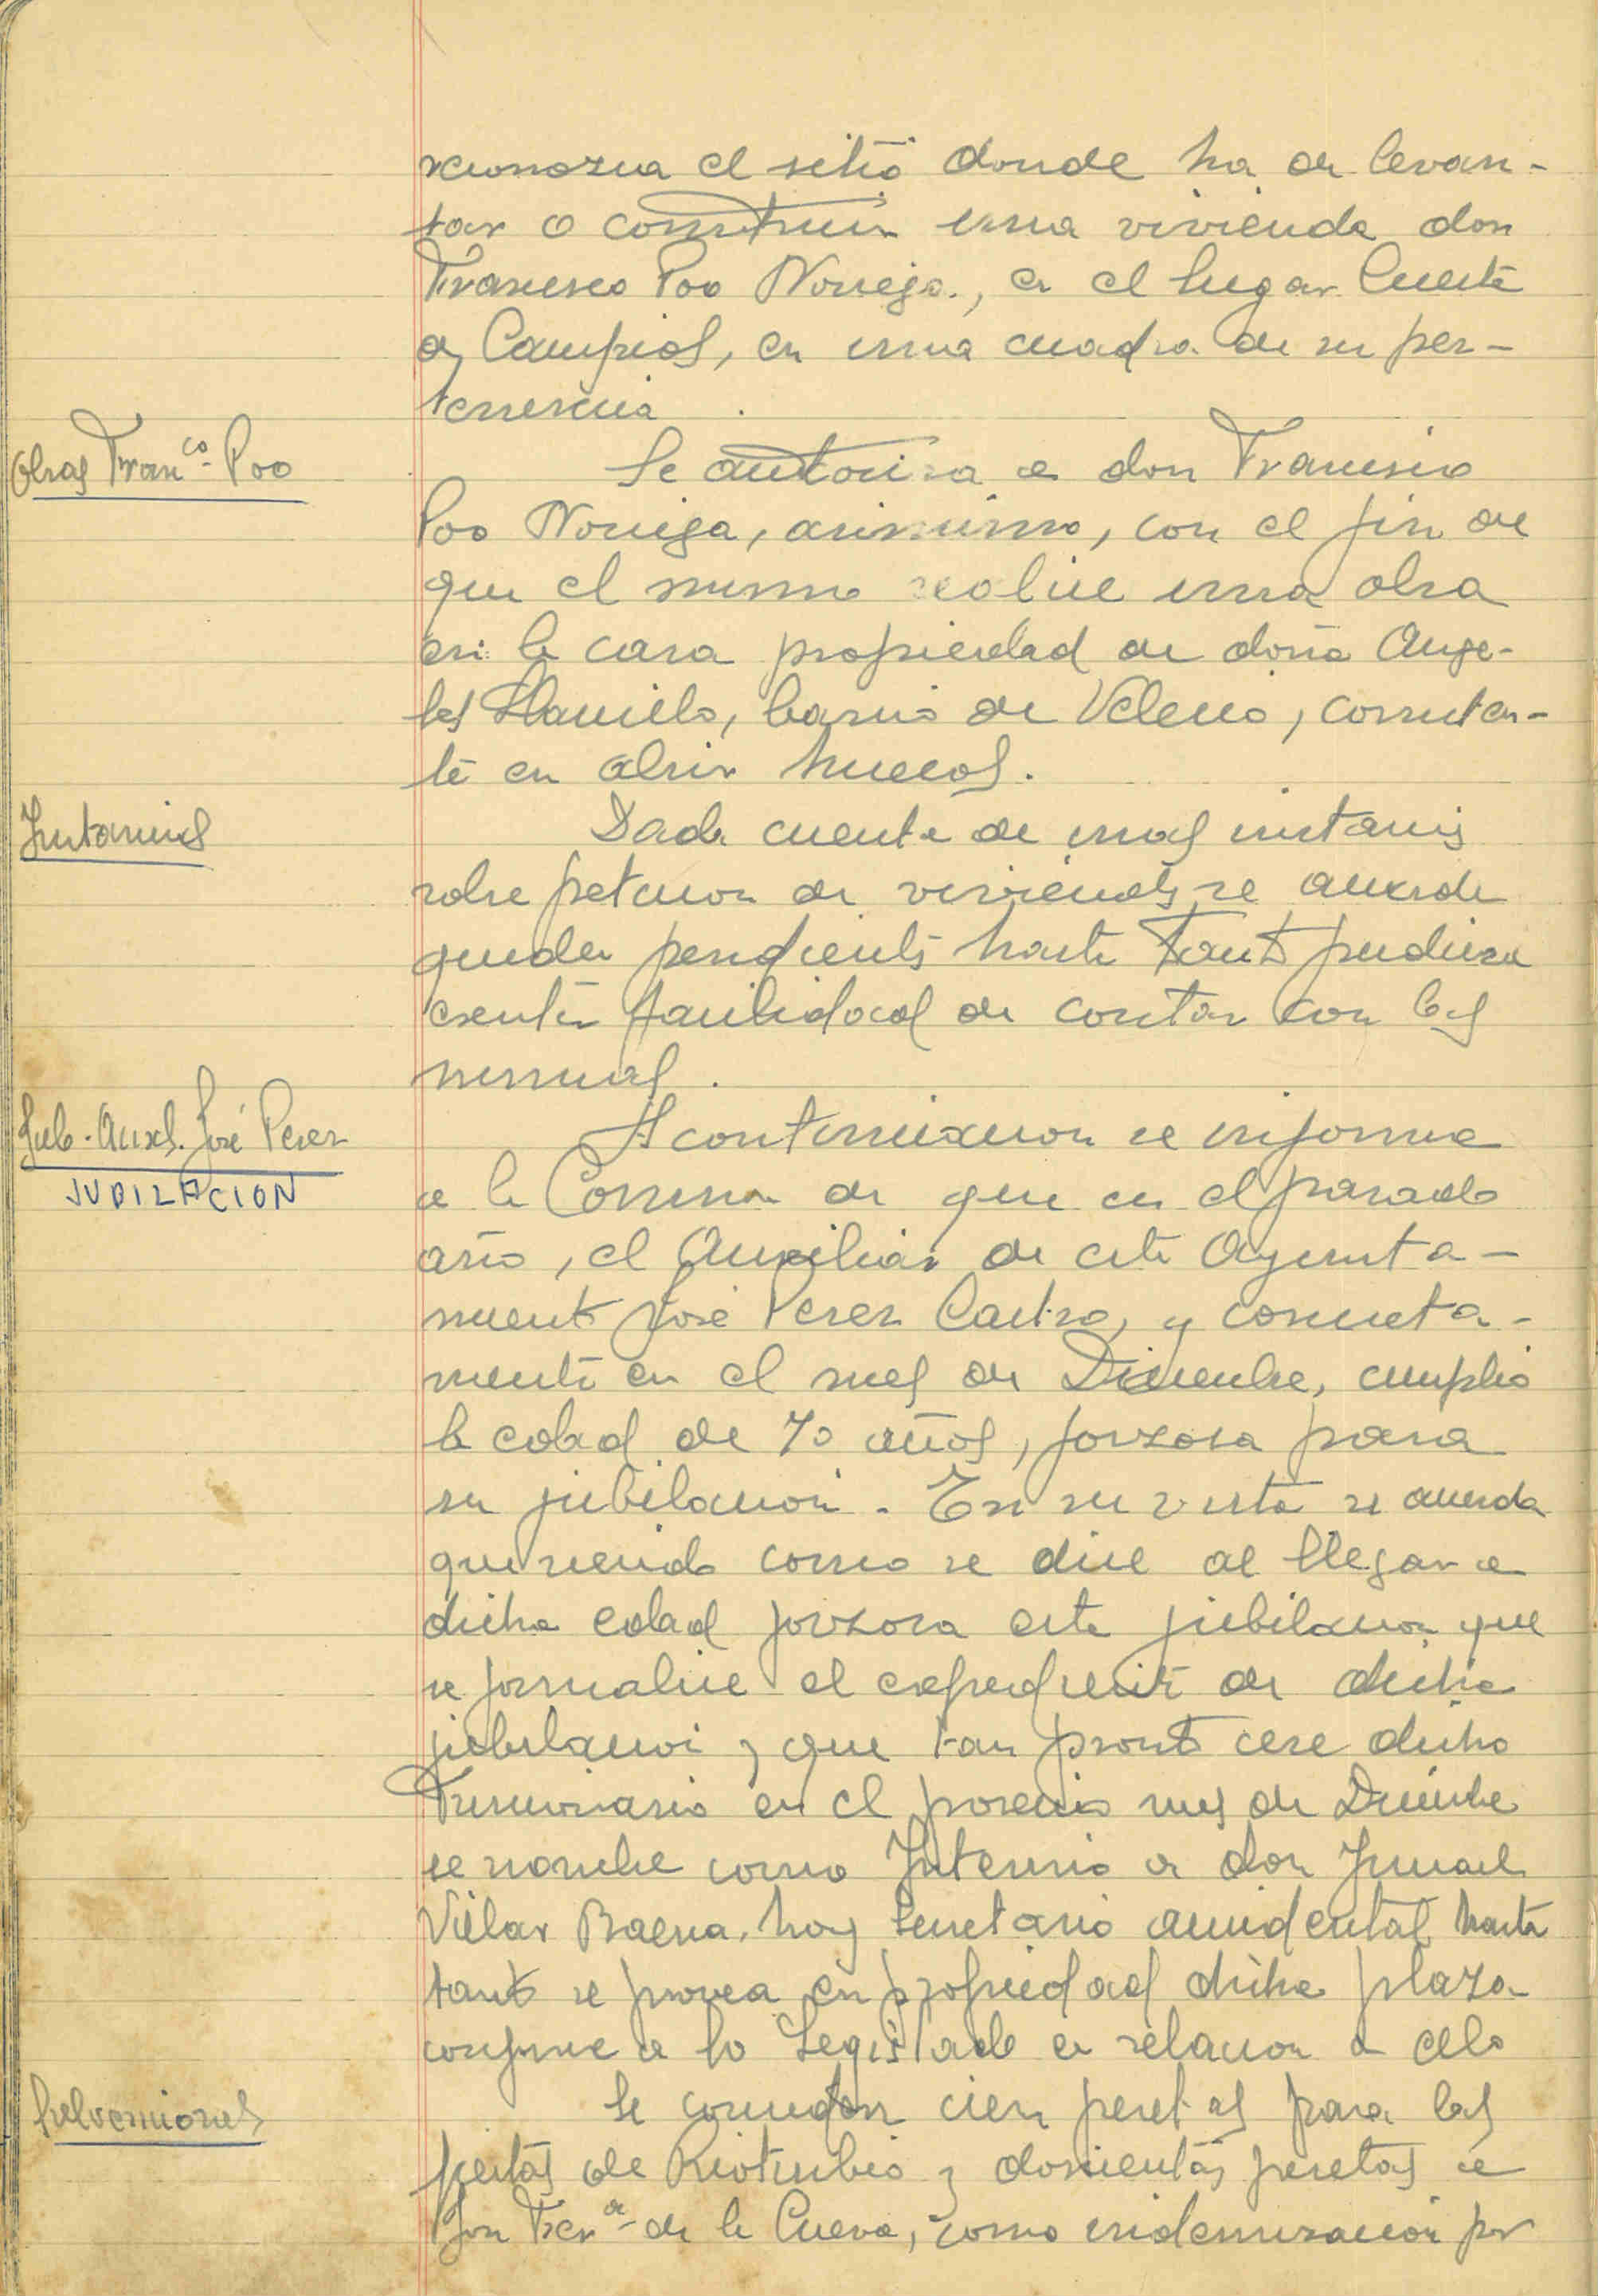 reconozca el sitio donde ha de levan-
tar o construir una vivienda don
Francisco Poo Noriega, en el lugar Cuesta
de Campios, en una cuadra de su per-
tenencia.
Obras Fran^co Poo
Se autoriza a don Francisco
Poo Noriega, asimismo, con el fin de
que el mismo realice una obra
en la casa propiedad de doña Ange-
les barrio de Velecio, consisten-
te en abrir huecos.
Instancias
Dada cuenta de unas instancias
sobre peticion de viviendas se acuerda
quedar pendientes hasta tanto pudiera
existir facilidades de contar con las
mismas.
Jub. Auxl. José Perez
JUBILACION
A continuacion se informa
a la Comision de que en el pasado
año, el Auxiliar de este Ayunta-
miento José Perez Castro, y concreta-
mente en el mes de Diciembre, cumplió
la edad de 70 años, forzosa para
su jubilacion. En su vista se acuerda
que siendo como se dice al llegar a
dicha edad forzosa esta jubilacion que
se formalice el expediente de dicha
jubilacion y que tan pronto cese dicho
Funcionario en el mes de Diciembre
se nombre como Interino a don Ismael
Villar Baena, hoy Secretario accidental hasta
tanto se provea en propiedad dicha plaza
conforme a lo Legislado en relacion a ello
Subvenciones
Se conceden cien pesetas para las
fiestas de Rioturbio y doscientas pesetas a
de la Cueva, como indemnizacion por